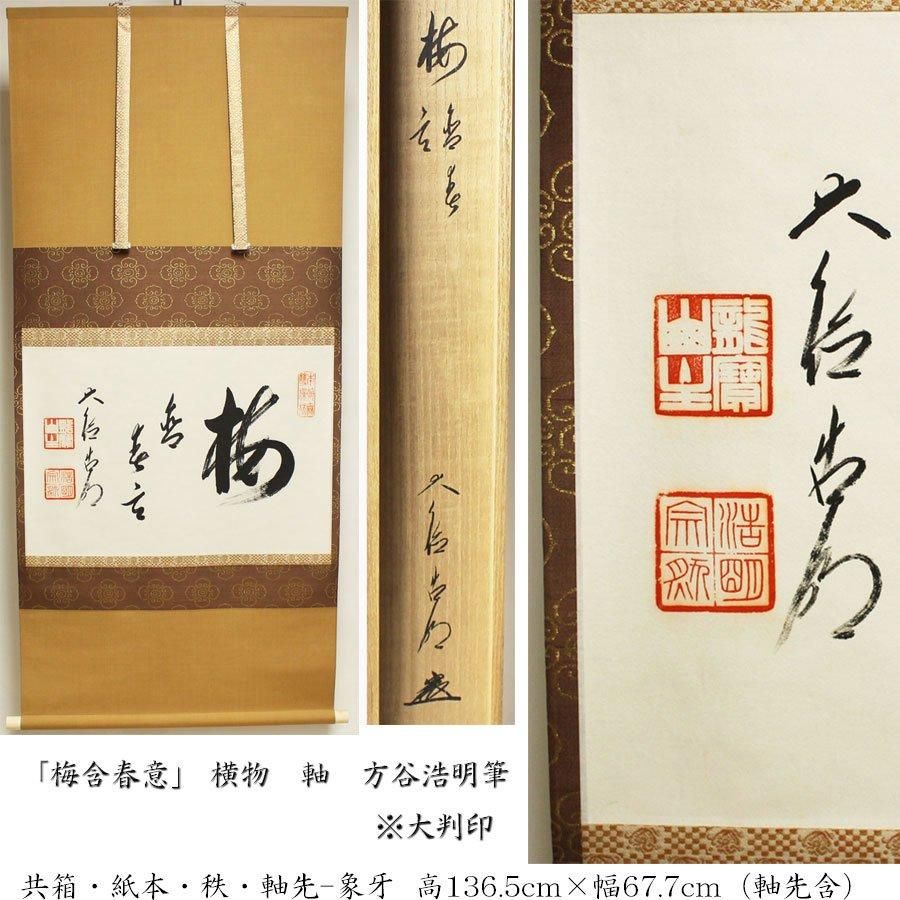 梅
含
春意
大徳浩明
龍寶
山主
浩明
梅
含春
意
大徳浩明
大徳浩明
龍寶
山主
浩明
「梅含春意」 横物 軸 方谷浩明筆
※大判印
共箱・紙本・秩・軸先-象牙 高136.5cm×幅67.7cm（軸先含）